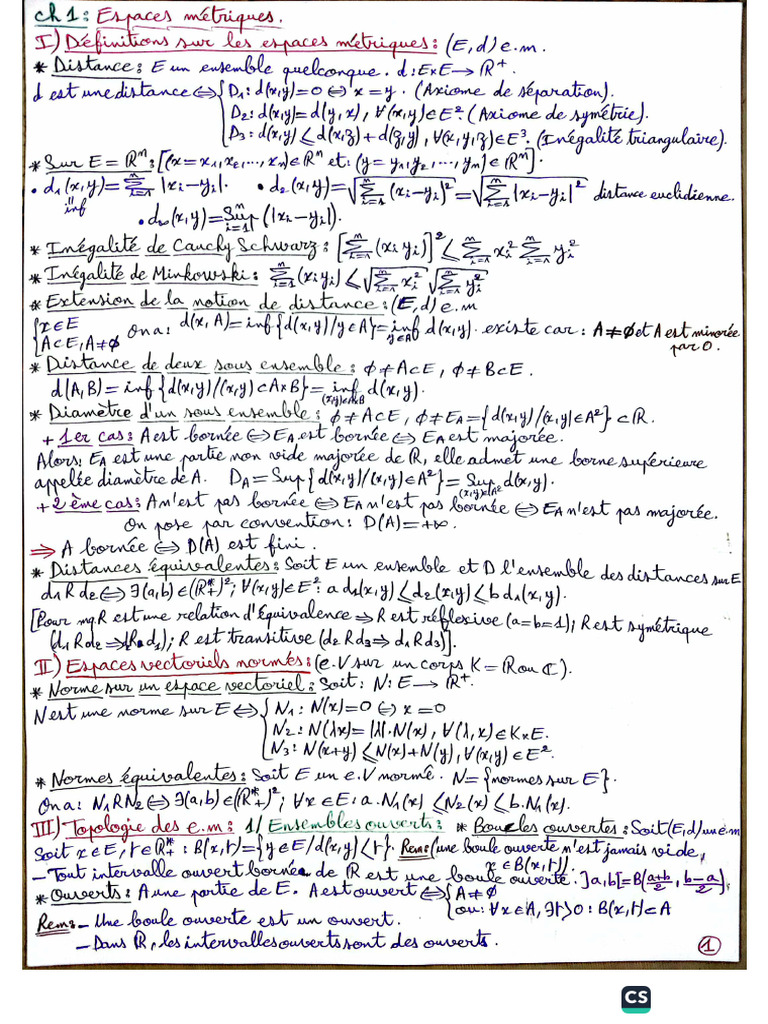 Ch 1: Espaces métriques.
I) Définitions sur les espaces métriques: (E,d) e.m.
* Distance: E un ensemble quelconque. d: E×E → R⁺.
d est une distance ⇔ { D₁: d(x,y)=0 ⇔ x=y. (Axiome de séparation).
D₂: d(x,y)=d(y,x), ∀(x,y)∈E². (Axiome de symétrie).
D₃: d(x,y) ≤ d(x,z)+d(z,y), ∀(x,y,z)∈E³. (Inégalité triangulaire).
* Sur E=Rⁿ: [(x=x₁,x₂,...,xₙ)∈Rⁿ et: (y=y₁,y₂,...,yₙ)∈Rⁿ].
• d₁(x,y)=∑ⁿᵢ₌₁ |xᵢ-yᵢ|. • d₂(x,y)=√(∑ⁿᵢ₌₁ (xᵢ-yᵢ)²)=√(∑ⁿᵢ₌₁ |xᵢ-yᵢ|²) distance euclidienne.
inf
• d∞(x,y)=Supⁿᵢ₌₁(|xᵢ-yᵢ|).
* Inégalité de Cauchy Schwarz: [∑ⁿᵢ₌₁(xᵢyᵢ)]² ≤ ∑ⁿᵢ₌₁ xᵢ² ∑ⁿᵢ₌₁ yᵢ²
* Inégalité de Minkowski: ∑ⁿᵢ₌₁(xᵢyᵢ) ≤ √(∑ⁿᵢ₌₁ xᵢ²) √(∑ⁿᵢ₌₁ yᵢ²)
* Extension de la notion de distance: (E,d) e.m
{ x∈E A⊂E, A≠∅ On a: d(x,A)=inf{d(x,y)/y∈A}=inf_{y∈A} d(x,y). existe car: A≠∅ et A est minorée
par 0.
* Distance de deux sous ensemble: ∅≠A⊂E, ∅≠B⊂E.
d(A,B)=inf{d(x,y)/(x,y)⊂A×B}=inf_{(x,y)∈A×B} d(x,y).
* Diamètre d'un sous ensemble: ∅≠A⊂E, ∅≠E_A={d(x,y)/(x,y)∈A²}⊂R.
+ 1er cas: A est bornée ⇔ E_A est bornée ⇔ E_A est majorée.
Alors: E_A est une partie non vide majorée de R, elle admet une borne supérieure
appelée diamètre de A. D_A=Sup{d(x,y)/(x,y)∈A²}=Sup_{(x,y)∈A²} d(x,y).
+ 2ème cas: A n'est pas bornée ⇔ E_A n'est pas bornée ⇔ E_A n'est pas majorée.
On pose par convention: D(A)=+∞.
⇒ A bornée ⇔ D(A) est fini.
* Distances équivalentes: Soit E un ensemble et D l'ensemble des distances sur E
d₁ R d₂ ⇔ ∃(a,b)∈(R*₊)²; ∀(x,y)∈E²: a d₁(x,y) ≤ d₂(x,y) ≤ b d₁(x,y).
[Pour mq R est une relation d'équivalence ⇒ R est réflexive (a=b=1); R est symétrique
(d₁Rd₂ ⇒ d₂Rd₁); R est transitive (d₂Rd₃ ⇒ d₁Rd₃)].
II) Espaces vectoriels normés: (e.V sur un corps K=R ou C).
* Norme sur un espace vectoriel: Soit: N: E → R⁺.
N est une norme sur E ⇔ { N₁: N(x)=0 ⇔ x=0
N₂: N(λx)=|λ|.N(x), ∀(λ,x)∈K×E.
N₃: N(x+y) ≤ N(x)+N(y), ∀(x,y)∈E².
* Normes équivalentes: Soit E un e.V normé. N={normes sur E}.
On a: N₁RN₂ ⇔ ∃(a,b)∈(R*₊)²; ∀x∈E: a.N₁(x) ≤ N₂(x) ≤ b.N₁(x).
III) Topologie des e.m: 1/ Ensembles ouverts: * Boucles ouvertes: Soit (E,d) un e.m
Soit x∈E, r∈R*₊: B(x,r)={y∈E/d(x,y)<r}. Rem: (une boule ouverte n'est jamais vide,
x∈B(x,r)).
- Tout intervalle ouvert bornée de R est une boule ouverte. ]a,b[=B(a+b/2, b-a/2).
* Ouverts: A une partie de E. A est ouvert ⇔ { A≠∅
ou: ∀x∈A, ∃r>0: B(x,r)⊂A
Rem: - Une boule ouverte est un ouvert.
- Dans R, les intervalles ouverts sont des ouverts.
1
CS